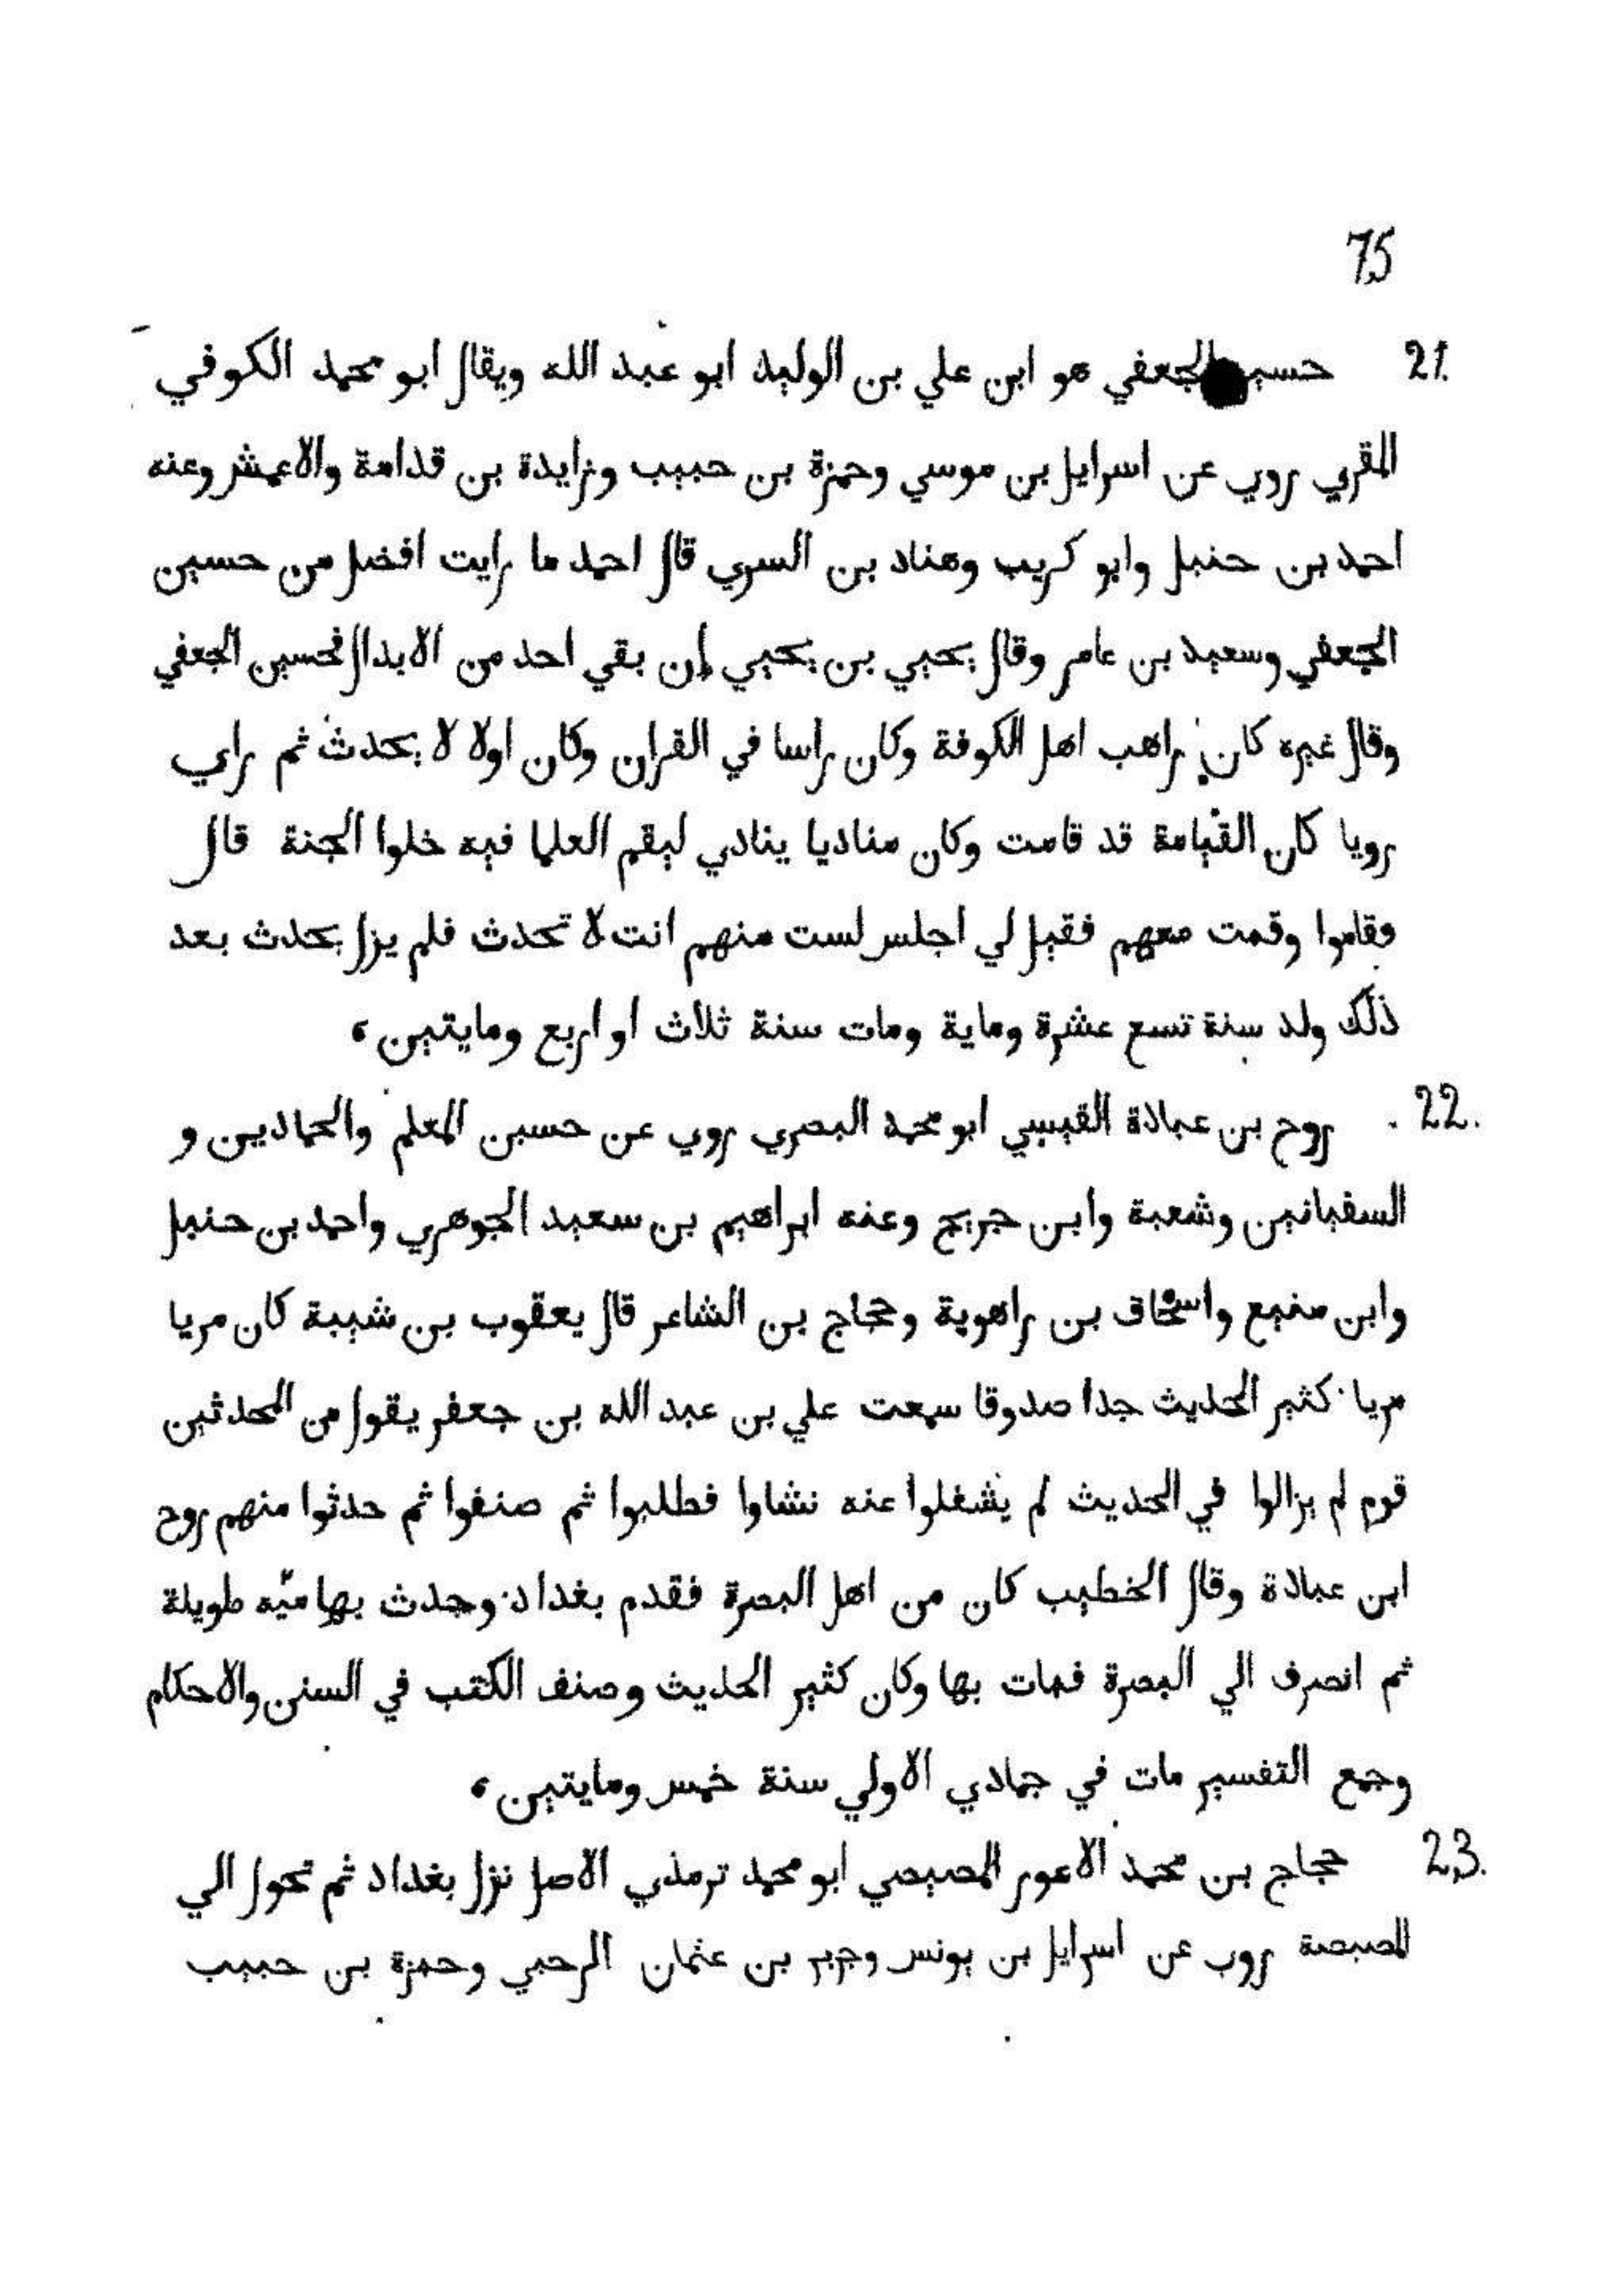 75
21. حسين الجعفي هو ابن علي بن الوليد ابو عبد الله ويقال ابو محمد الكوفي
المقري روي عن اسرايل بن موسي وحمزة بن حبيب وزايدة بن قدامة والاعمش وعنه
احمد بن حنبل وابو كريب وهناد بن السري قال احمد ما رايت افضل من حسين
الجعفي وسعيد بن عامر وقال يحيي بن يحيي إن بقي احد من الابدال فحسين الجعفي
وقال غيره كان راهب اهل الكوفة وكان راسا في القران وكان اولا لا يحدث ثم راي
رويا كان القيامة قد قامت وكان مناديا ينادي ليقم العلما فيه خلوا الجنة قال
فقاموا وقمت معهم فقيل لي اجلس لست منهم انت لا تحدث فلم يزل يحدث بعد
ذلك ولد سنة تسع عشرة وماية ومات سنة ثلاث او اربع ومايتين،
22. روح بن عبادة القيسي ابو محمد البصري روي عن حسين المعلم والحمادين و
السفيانين وشعبة وابن جريج وعنه ابراهيم بن سعيد الجوهري واحمد بن حنبل
وابن منيع واسحاق بن راهوية وحجاج بن الشاعر قال يعقوب بن شيبة كان مريا
مريا كثير الحديث جدا صدوقا سمعت علي بن عبد الله بن جعفر يقول من المحدثين
قوم لم يزالوا في الحديث لم يشغلوا عنه نشاوا فطلبوا ثم صنفوا ثم حدثوا منهم روح
ابن عبادة وقال الخطيب كان من اهل البصرة فقدم بغداد وحدث بها طويلة
ثم انصرف الي البصرة فمات بها وكان كثير الحديث وصنف الكتب في السنن والاحكام
وجمع التفسير مات في جمادي الاولي سنة خمس ومايتين،
23. حجاج بن محمد الاعور المصيصي ابو محمد ترمذي الاصل نزل بغداد ثم تحول الي
المصيصة روي عن اسرايل بن يونس وجرير بن عثمان الرحبي وحمزة بن حبيب